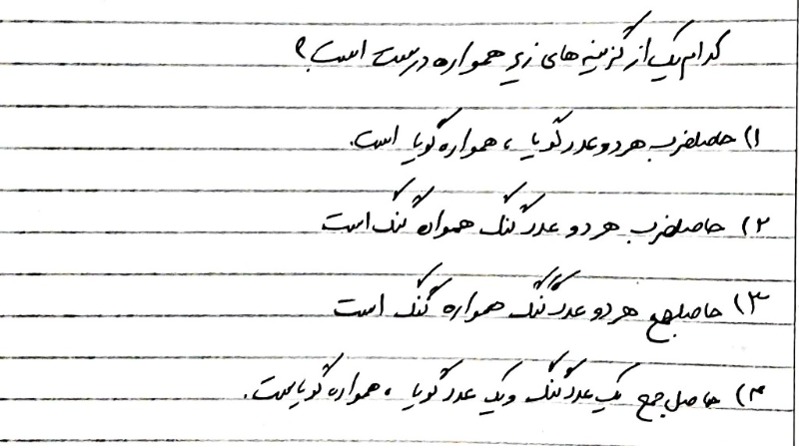 کدام یک از گزینه های زیر همواره درست است؟
۱) حاصلضرب هر دو عدد گویا ، همواره گویا است.
۲) حاصلضرب هر دو عدد گنگ همواره گنگ است
۳) حاصلجمع هر دو عدد گنگ همواره گنگ است
۴) حاصل جمع یک عدد گنگ و یک عدد گویا ، همواره گویاست.